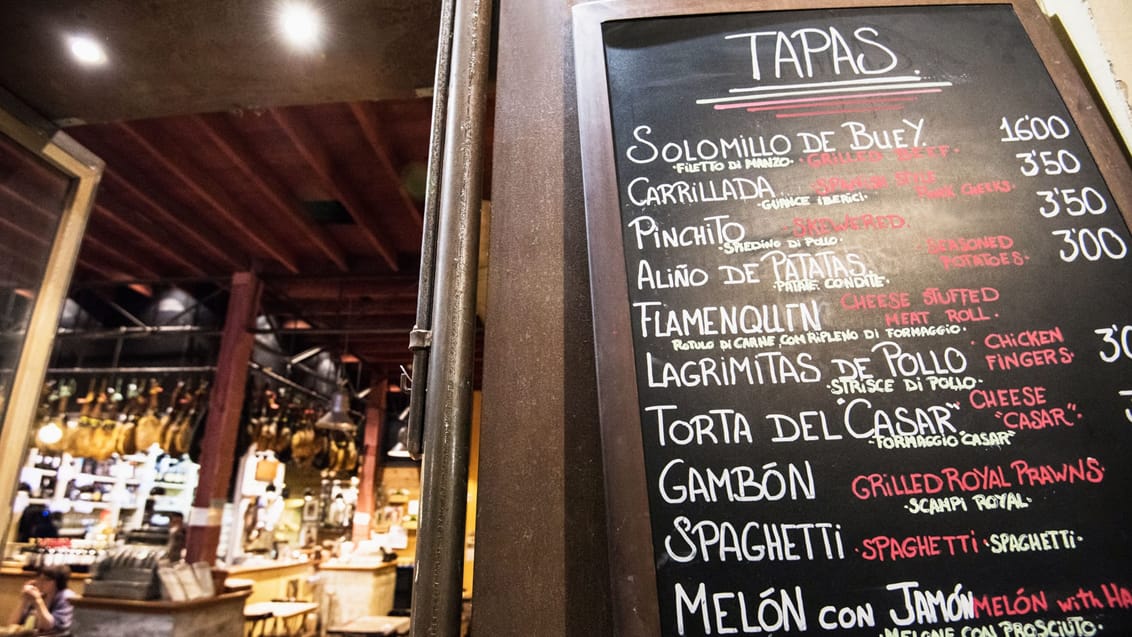 TAPAS.
SOLOMILLO DE BUEY. 16'00
·FILETTO DI MANZO· ·GRILLED BEEF
CARRILLADA 3'50
SPANISH STYLE PORK CHEEKS·
·GUANCE IBERICI·
PINCHITO SKEWERED. 3'50
·SPIEDINO DI POLLO·
ALIÑO DE PATATAS. 3'00
SEASONED POTATOES·
·PATATE CONDITE·
FLAMENQUIN
CHEESE STUFFED MEAT ROLL·
ROTULO DI CARNE CON RIPLENO DI FORMAGGIO·
LAGRIMITAS DE POLLO
·CHICKEN FINGERS·
·STRISCE DI POLLO·
TORTA DEL "CASAR"
·CHEESE "CASAR"·
·FORMAGGIO "CASAR"
GAMBÓN GRILLED ROYAL PRAWNS·
·SCAMPI ROYAL·
SPAGHETTI ·SPAGHETTI ·SPAGHETTI·
MELÓN CON JAMÓN MELÓN WITH
MELONE CON PROSCIUTO·